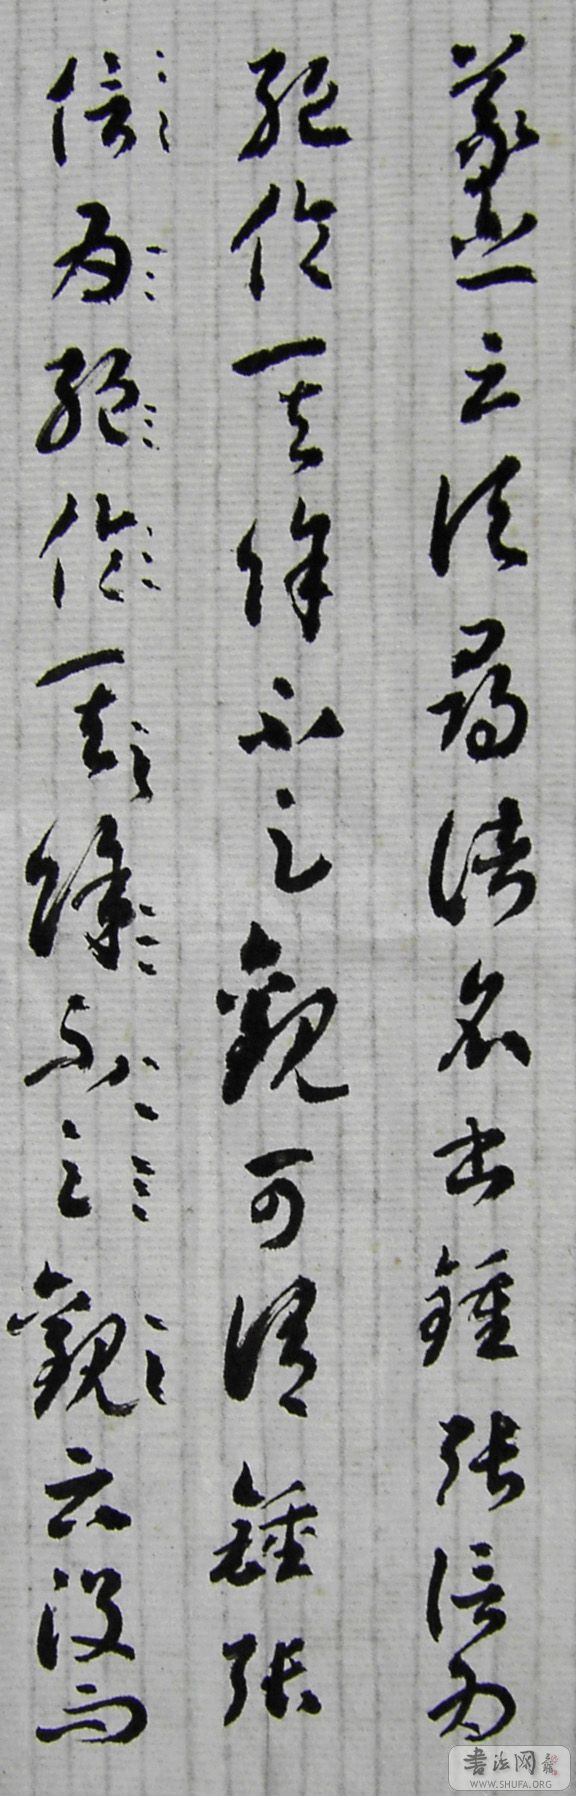 羲之云頃尋諸名書鍾張信為
絕倫其餘不足觀可謂鍾張
信為絕倫其餘不足觀云沒而
書法网
WWW.SHUFA.ORG